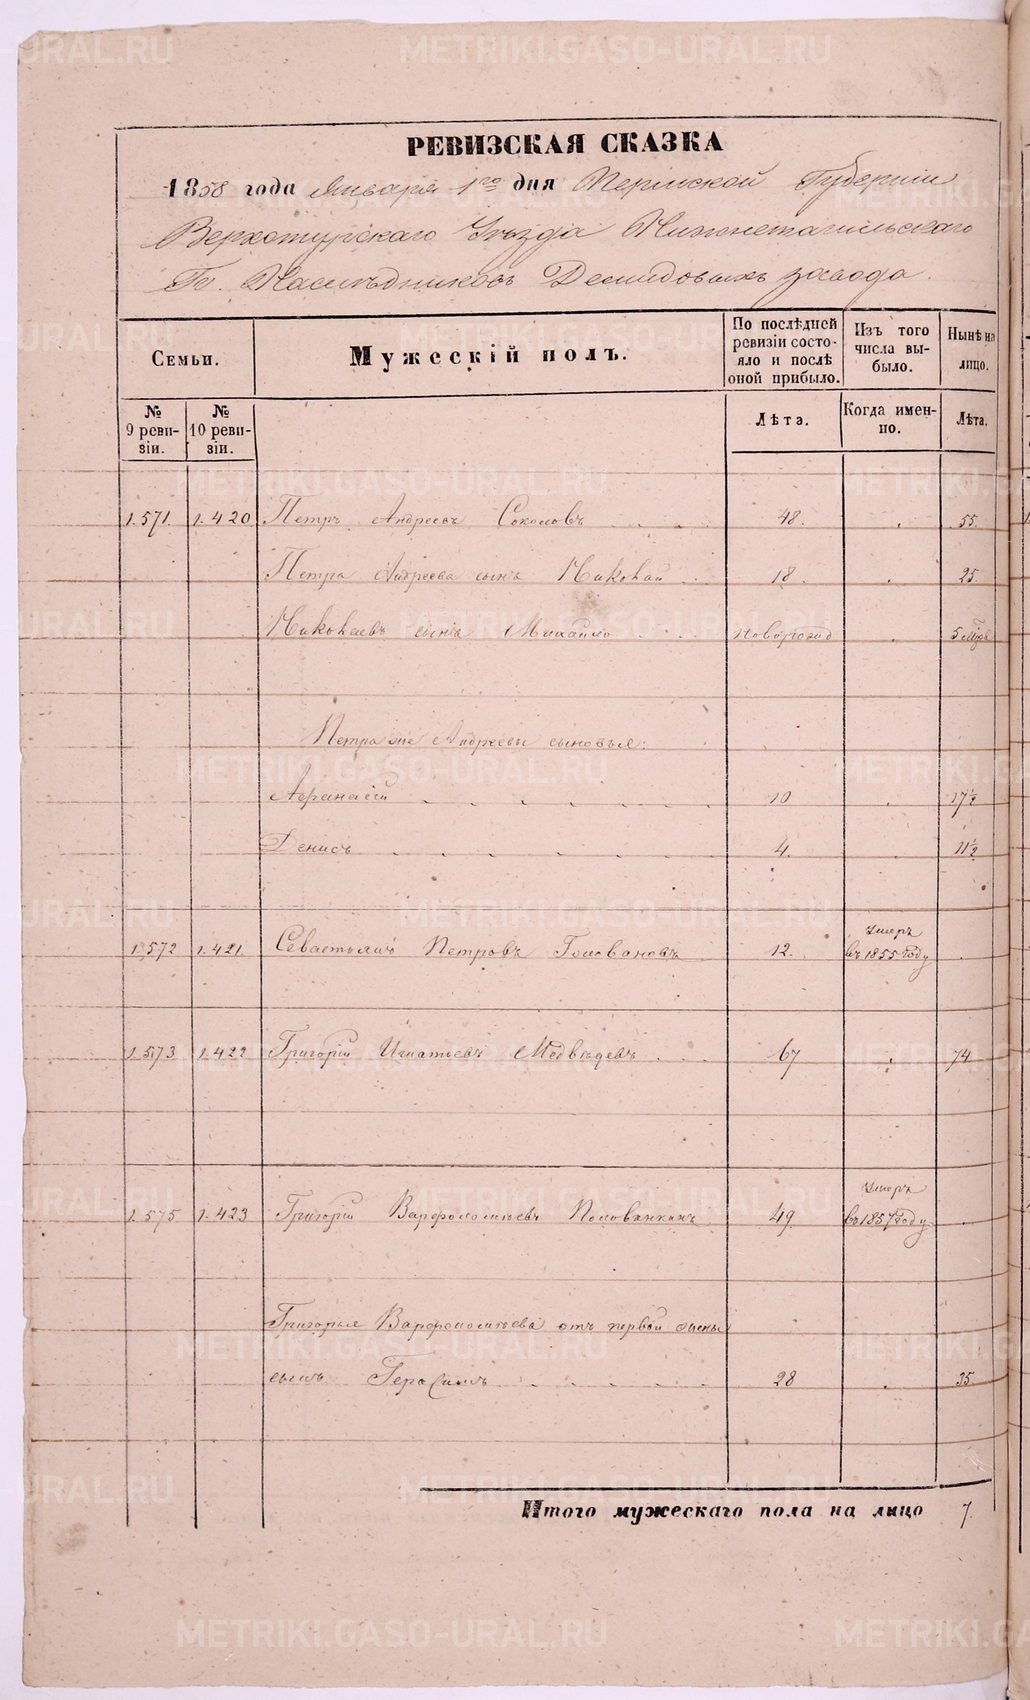 METRIKI.GASO-URAL.RU
РЕВИЗСКАЯ СКАЗКА
1858 года Января 1го дня Пермской Губернии
Верхотурскаго Уѣзда Нижнетагильскаго
Гг. Наслѣдниковъ Демидовыхъ завода.
Семьи. Мужескій полъ. По послѣдней ревизіи состояло и послѣ оной прибыло. Изъ того числа выбыло. Нынѣ на лицо.
№ 9 ревизіи. № 10 ревизіи. Лѣта. Когда именно. Лѣта.
1.571. 1.420 Петръ Андреевъ Соколовъ 48. 55.
Петра Андреева сынъ Николай 18. 25.
Николаевъ сынъ Михайло новорожд 5 мѣс
Петра же Андреевы сыновья:
Афанасій 10 17½
Денисъ 4. 11½
1.572 1.421. Севастьянъ Петровъ Головановъ 12. умеръ
въ 1855 году
1.573 1.422 Григорій Игнатьевъ Медвѣдевъ 67 74
1.575 1.423 Григорій Варфоломѣевъ Половинкинъ 49 Умеръ
въ 1857 году
Григорья Варфоломѣева отъ первой жены
сынъ Герасимъ 28 35
Итого мужескаго пола на лицо 7.